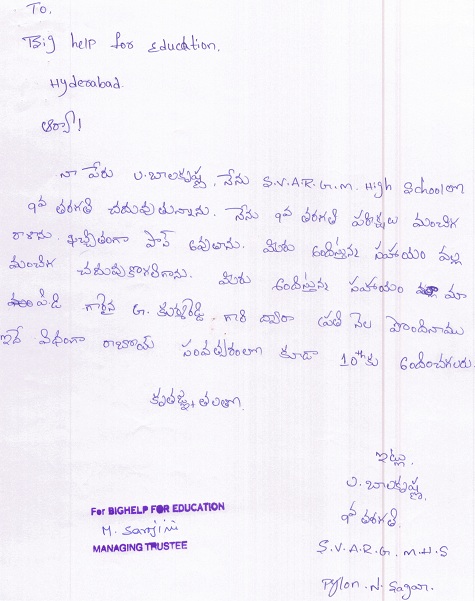 To,
Big help for Education.
Hyderabad.
ఆర్యా!
నా పేరు ఎ. బాలకృష్ణ. నేను S.V.A.R.G.M. High School లో
9వ తరగతి చదువుతున్నాను. నేను 9వ తరగతి పరీక్షలు మంచిగ
రాశాను. ఖచ్చితంగా పాస్ అవుతాను. మీరు అందిస్తున్న సహాయం వల్ల
మంచిగ చదువుకొగలిగాను. మీరు అందిస్తున్న సహాయం మా
పి.డి గారైన G. గారి ద్వారా ప్రతి నెల పొందినాము
ఇదే విధంగా రాబోయే సంవత్సరంలో కూడా 10th కు అందించగలరు.
కృతజ్ఞతలతో
ఇట్లు
ఎ. బాలకృష్ణ
9వ తరగతి.
S.V.A.R.G.M.H.S
Pylon. N. Sagar.
For BIGHELP FOR EDUCATION
M. Sarojini
MANAGING TRUSTEE